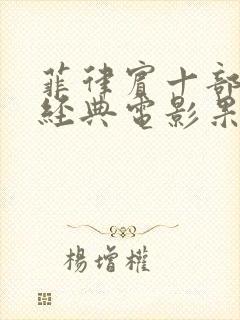 菲律賓十部
經典電影果
楊增權